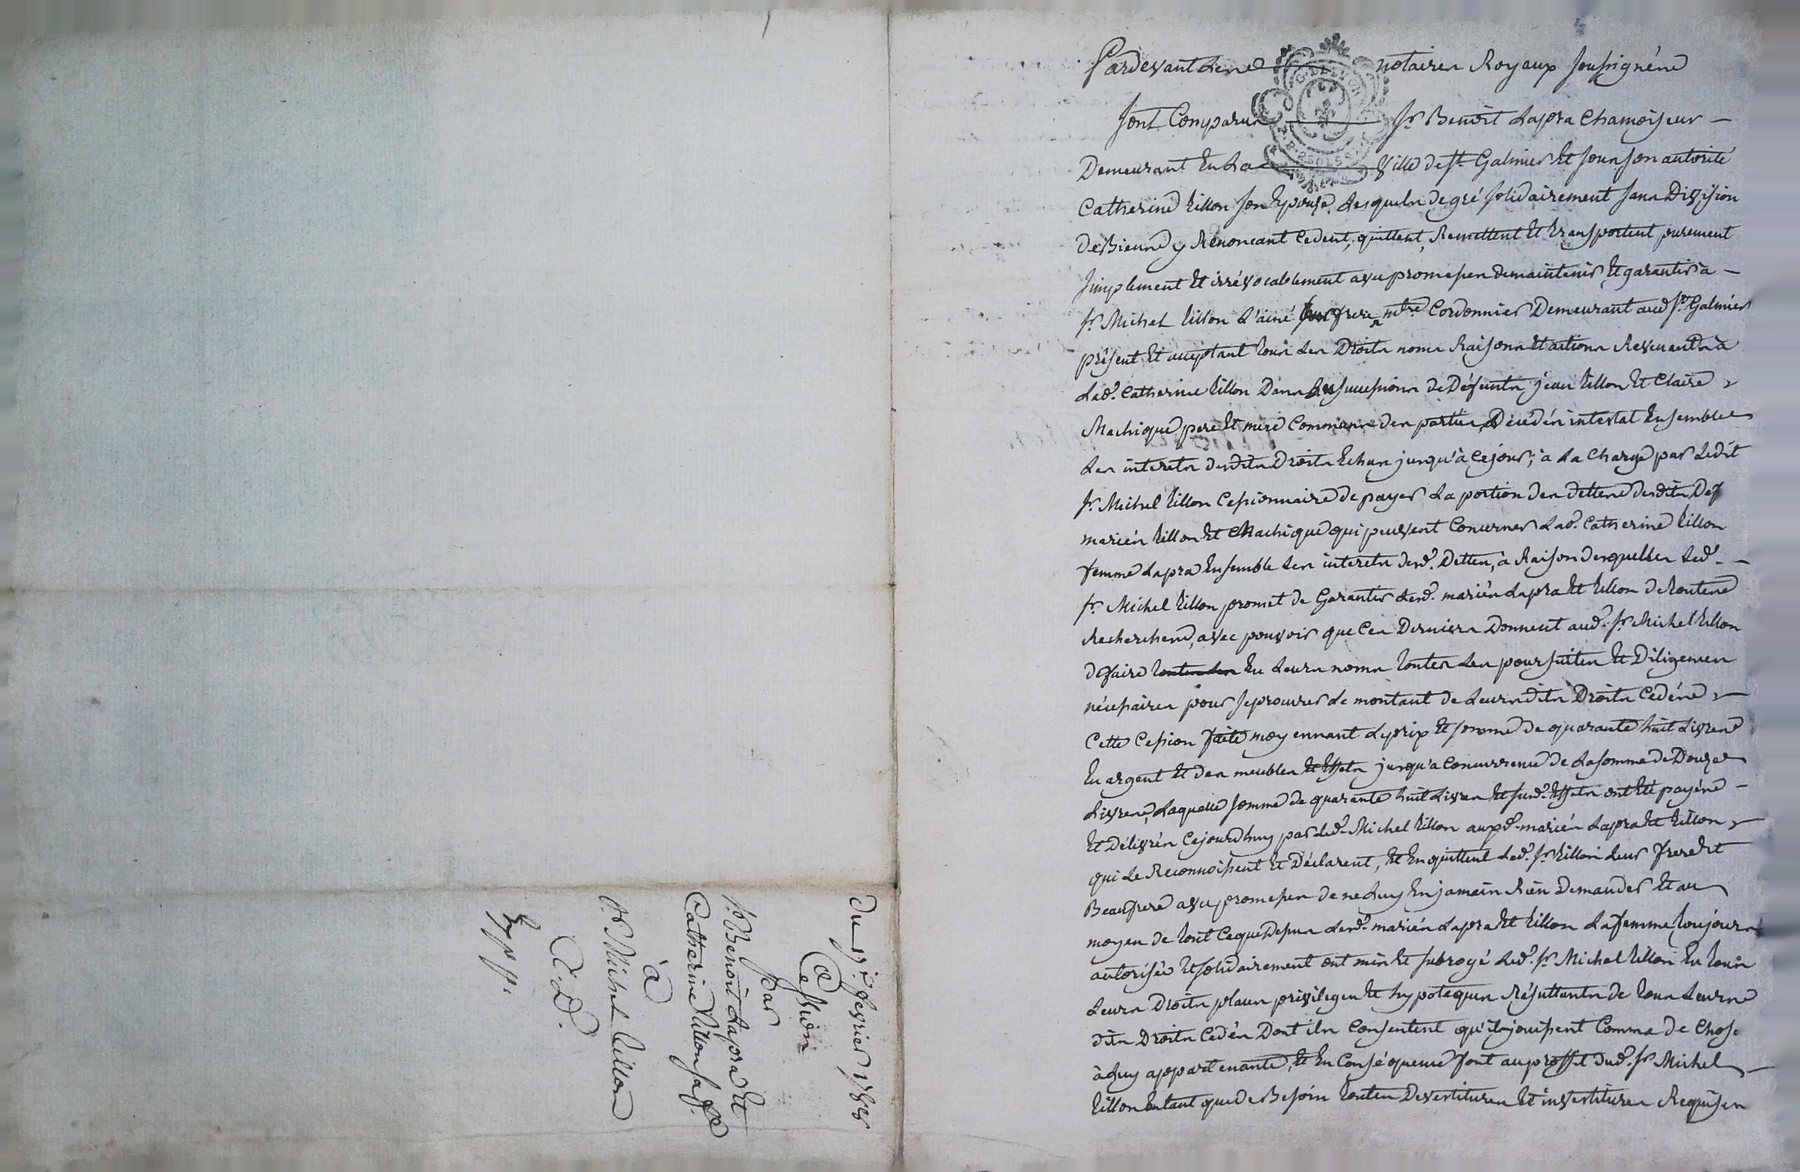 Pardevant Les notaires Royaux soussignés
sont Comparus Sr. Benoit Lapra Chamoiseur
Demeurant En La Ville de St. Galmier Et sous son autorité
Catherine Tillon son Epouse, Lesquels de gré solidairement sans Division
de Biens y Renoncant Cedent, quittent, Remettent Et transportent purement
simplement Et irrévocablement avec promesses de maintenir Et garantir à
Sr. Michel Tillon L'ainé frere mtre Cordonnier Demeurant aud. St. Galmier
présent Et acceptant tous Les Droits noms Raisons Et actions Revenants à
Lad. Catherine Tillon Dans Les successions de Défunts jean Tillon Et Claire
Machique pere Et mere Communs des parties, Décédés intestat Ensemble
Les interets desdits Droits Echus jusqu'à Ce jour; à La Charge par Ledit
Sr. Michel Tillon Cessionnaire de payer La portion des dettes desdits Def
mariés Tillon Et Machique qui peuvent Concerner Lad. Catherine Tillon
femme Lapra Ensemble Les interets desd. Dettes, à Raison desquelles Led.
Sr. Michel Tillon promet de Garantir Lesd. mariés Lapra Et Tillon de toutes
Recherches, avec pouvoir que Ces Derniers Donnent aud. Sr. Michel Tillon
de faire En Leurs noms toutes Les poursuites Et Diligences
nécessaires pour se procurer Le montant de Leursdits Droits Cédés
Cette Cession faite moyennant Le prix Et somme de quarante huit Livres
En argent Et des meubles Et Effets jusqu'a Concurrence de La somme de Douze
Livres, Laquelle somme de quarante huit Livres Et susd. Effets ont Eté payés
Et Délivrés Cejourdhuy par Led. Michel Tillon auxd. mariés Lapra Et Tillon
qui Le Reconnoissent Et Déclarent, Et En quittent Led. Sr. Tillon Leur frere Et
Beaufrere avec promesses de ne Luy En jamais Rien Demander Et au
moyen de tout Ce que Dessus Lesd. mariés Lapra Et Tillon La femme toujours
autorisée Et solidairement ont mis Et subrogé Led. Sr. Michel Tillon En tous
Leurs Droits places privileges Et hypoteques Résultants de tous Leurs
dits Droits Cédés Dont ils Consentent qu'il jouissent Comme de Chose
à Luy appartenante, Et En Conséquence font au proffit dud. Sr. Michel
Tillon Entant que de Besoin toutes Devestitures Et investitures Requises
Du 17e. fevrier 1788
Cession
par
Sr. Benoit Lapra Et
Catherine Tillon sa fe
à
Sr. Michel Tillon
C. D.